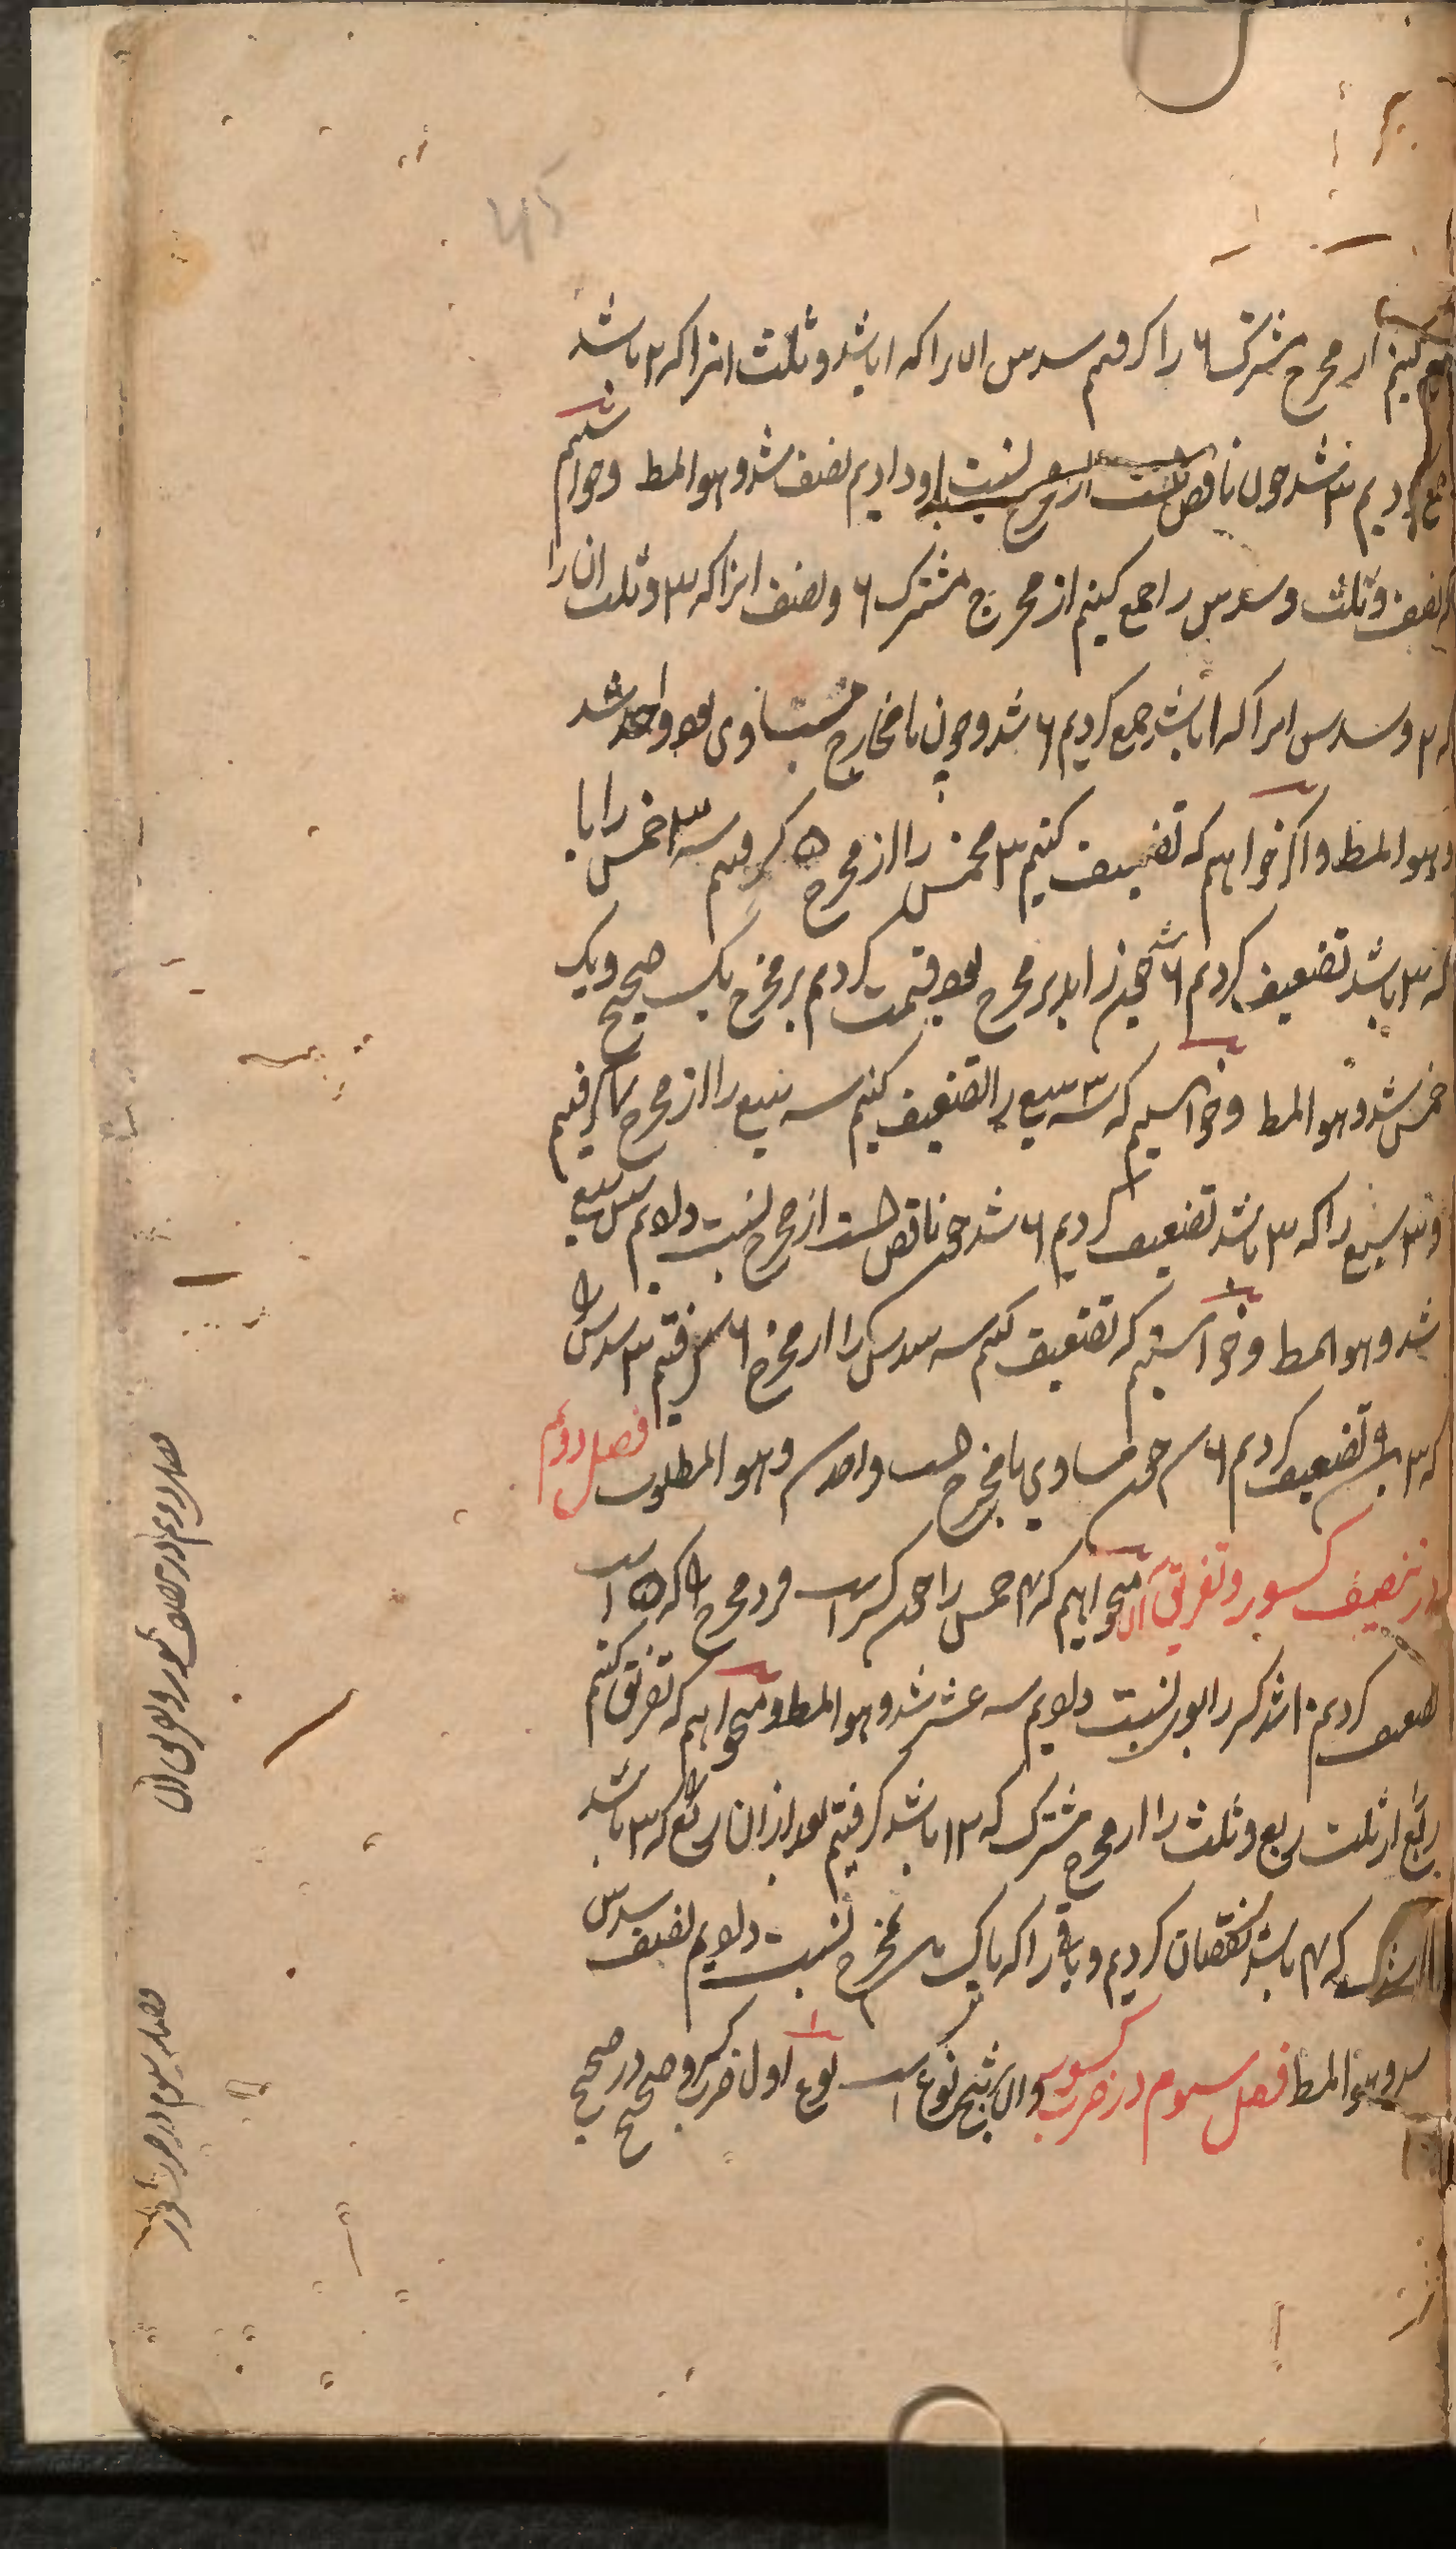 جمع کنیم از مخرج مشترک ۶ را کرفتیم سدس ان را که ۱ باشد و ثلث انرا که ۲ باشد
جمع کردیم ۳ شد چون ناقص است از مخرج نسبت باو دادیم نصف شد وهو المط وخواستیم
که نصف و ثلث و سدس را جمع کنیم از مخرج مشترک ۶ و نصف انرا که ۳ و ثلث ان را
که ۲ و سدس انرا که ۱ باشد جمع کردیم ۶ شد و چون با مخارج متساوی بود واحد شد
وهو المط واکر خواهیم که تضعیف کنیم ۳ خمس را از مخرج ۵ کرفتیم سه ۳ خمس را با
که ۳ باشد تضعیف کردیم ۶ شد چون زاید بر مخرج بود قسمت کردیم بر مخرج یک صحیح و یک
خمس شد وهو المط وخواستیم که سه ۳ سبع را تضعیف کنیم سه سبع را از مخرج ۷ کرفتیم
و ۳ سبع را که ۳ باشد تضعیف کردیم ۶ شد چون ناقص است از مخرج نسبت دادیم شش سبع
شد وهو المط وخواستیم که تضعیف کنیم سه سدس را از مخرج ۶ کرفتیم ۳ سدس را
که ۳ تضعیف کردیم ۶ شد چون مساوی با مخرج است واحد شد وهو المطلوب فصل دوم
در تنصیف کسور و تفریق آن میخواهیم که ۳ خمس را چون کسر است فرد مخرج را که ۵ است
تضعیف کردیم ۱۰ شد کسر را بوی نسبت دادیم سه عشر شد وهو المط ومیخواهیم که تفریق کنیم
ربع از ثلث ربع و ثلث را از مخرج مشترک که ۱۲ باشد کرفتیم بعد از ان ربع را که ۳ باشد
که ۴ باشد نقصان کردیم و باقی را که یک بمخرج نسبت دادیم نصف سدس
شد وهو المط فصل سیوم در ضرب کسور وان بر پنج نوع است نوع اول ضرب کسر و صحیح در صحیح
فصل دوم در تنصیف کسور و تفریق ان
فصل سیوم در ضرب کسور